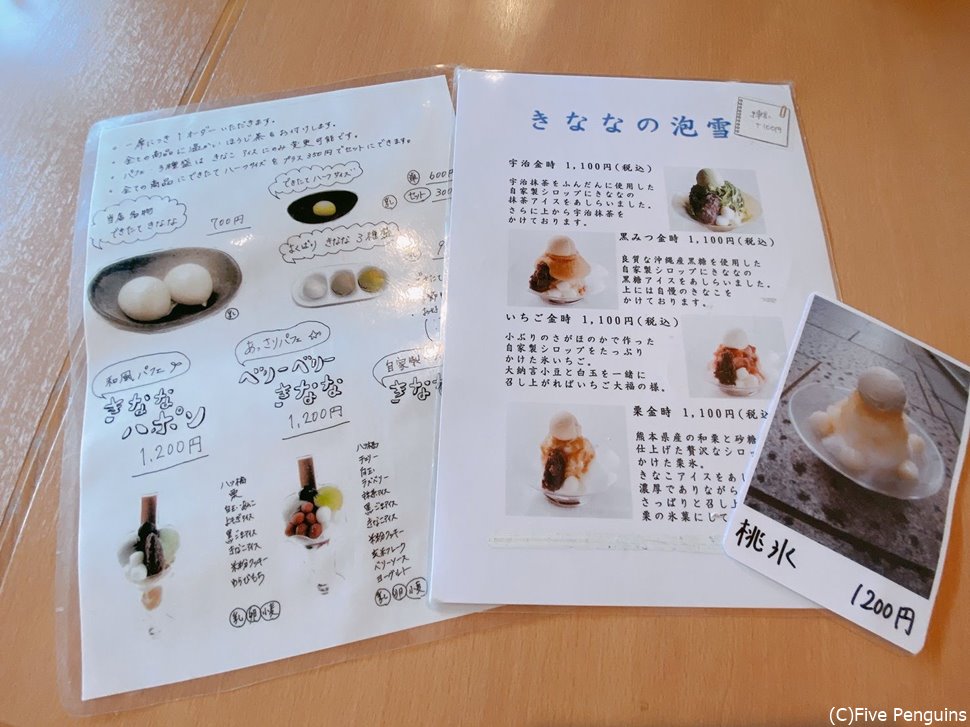 ・一席につき1オーダーいただきます。
・全ての商品に温かいほうじ茶もおつけします。
・パフェ、3種盛はきなこアイスにのみ変更可能です。
・全ての商品にできたてハーフサイズをプラス350円でセットにできます。
当店名物
できたてきなな
700円
乳
できたてハーフサイズ
単 600
セット 300
乳
よくばりきなな3種盛
和風パフェ
きなな
ハポン
1,200円
八ツ橋
栗
白玉・あんこ
よもぎアイス
黒ごまアイス
きなこアイス
米粉クッキー
わらびもち
乳 卵 小麦
あっさりパフェ
ベリーベリー
きなな
1,200円
八ツ橋
チェリー
白玉
ラズベリー
抹茶アイス
黒ごまアイス
きなこアイス
米粉クッキー
玄米フレーク
ベリーソース
ヨーグルト
乳 卵 小麦
自家製
きな
きななの泡雪
+100円
宇治金時 1,100円(税込)
宇治抹茶をふんだんに使用した
自家製シロップにきななの
抹茶アイスをあしらいました。
さらに上から宇治抹茶を
かけております。
黒みつ金時 1,100円(税込)
良質な沖縄産黒糖を使用した
自家製シロップにきななの
黒糖アイスをあしらいました。
上には自慢のきなこを
かけております。
いちご金時 1,100円(税込)
小ぶりのさがほのかで作った
自家製シロップをたっぷり
かけた氷いちご。
大納言小豆と白玉を一緒に
召し上がればいちご大福の様。
栗金時 1,100円(税込
熊本県産の和栗と砂糖
仕上げた贅沢なシロッ
かけた栗氷。
きなこアイスをあし
濃厚でありながら
さっぱりと召し上
栗の氷菓にして
桃氷
1200円
(C)Five Penguins